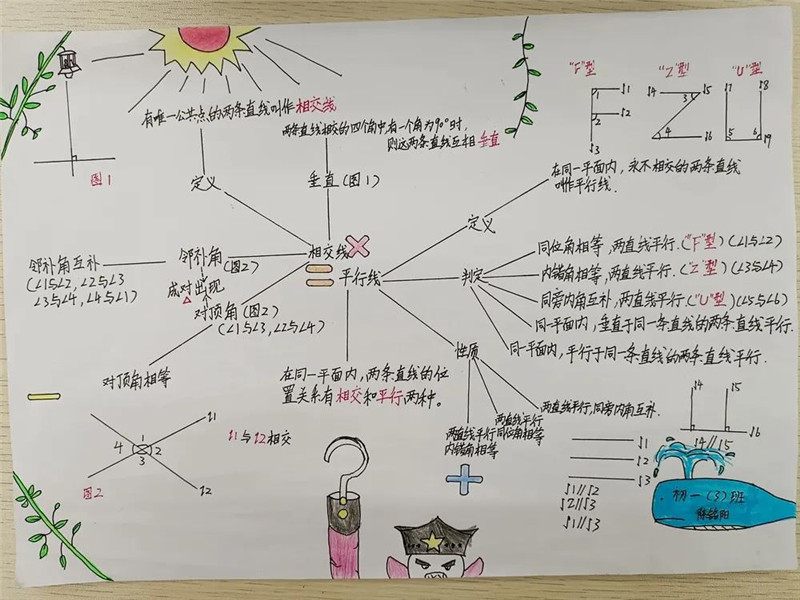 "F"型
"Z"型
"U"型
l1
l2
l3
1
2
l4
l5
l6
3
4
l7
l8
l9
5
6
有唯一公共点的两条直线叫作相交线
两条直线相交的四个角中有一个角为90°时,
则这两条直线互相垂直
图1
定义
垂直(图1)
在同一平面内,永不相交的两条直线
叫作平行线.
定义
相交线
平行线
邻补角互补
(∠1与∠2,∠2与∠3
∠3与∠4,∠4与∠1)
邻补角(图2)
成对出现
对顶角(图2)
(∠1与∠3,∠2与∠4)
对顶角相等
判定
同位角相等,两直线平行.("F"型)(∠1与∠2)
内错角相等,两直线平行.("Z"型)(∠3与∠4)
同旁内角互补,两直线平行.("U"型)(∠5与∠6)
同一平面内,垂直于同一条直线的两条直线平行.
同一平面内,平行于同一条直线的两条直线平行.
性质
在同一平面内,两条直线的位
置关系有相交和平行两种。
两直线平行
内错角相等
两直线平行
同位角相等
两直线平行,同旁内角互补.
l1
l2
1
2
3
4
图2
l1与l2相交
l1
l2
l3
l1//l2
l2//l3
l1//l3
l4
l5
l6
l4//l5
初一(3)班